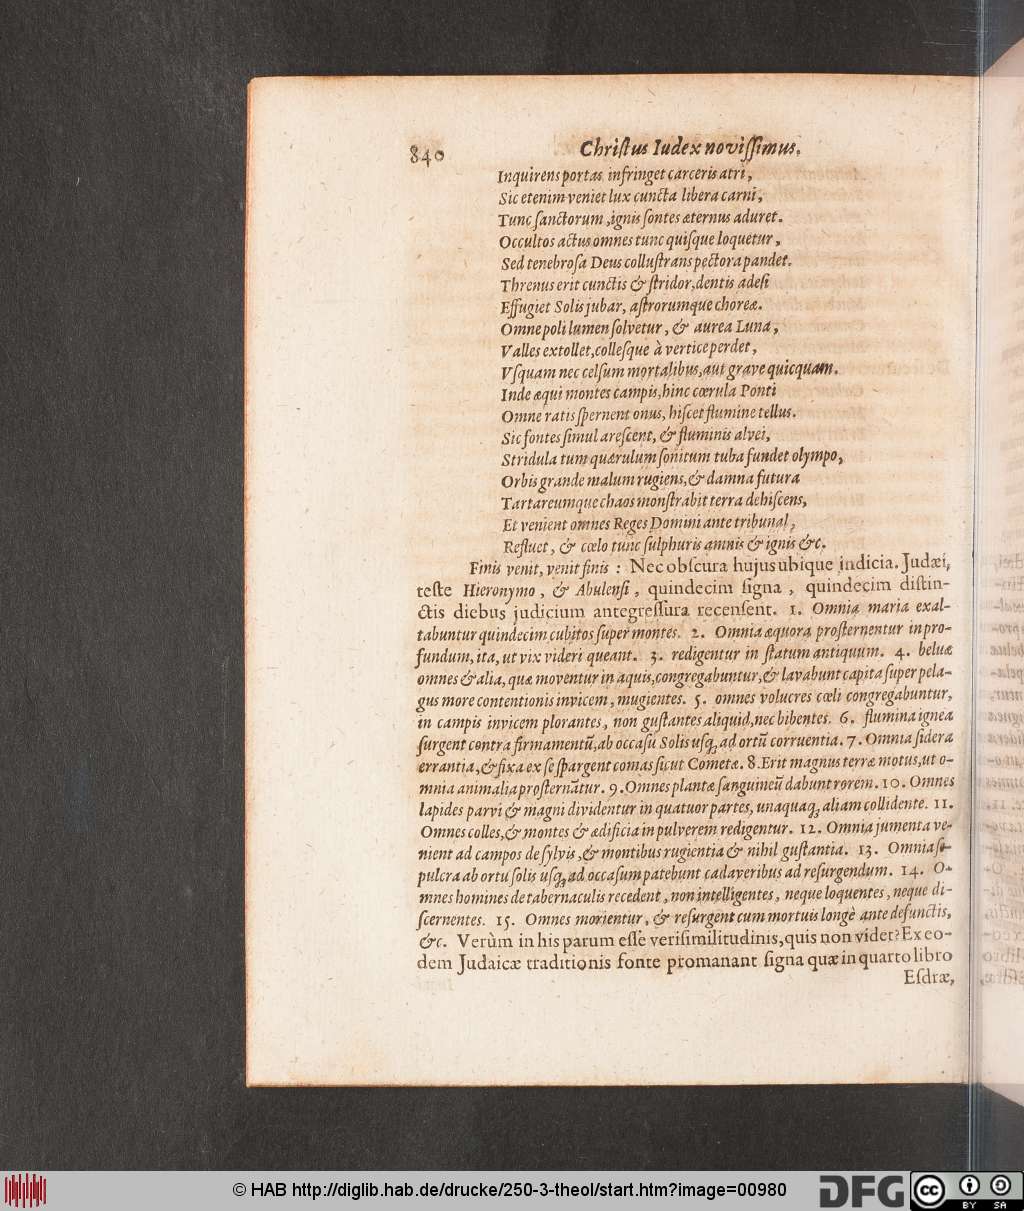 840 Chriſtus Iudex noviſſimus.
Inquirens portas infringet carceris atri,
Sic etenim veniet lux cuncta libera carni,
Tunc ſanctorum, ignis ſontes æternus aduret.
Occultos actus omnes tunc quiſque loquetur,
Sed tenebroſa Deus colluſtrans pectora pandet.
Threnus erit cunctis & ſtridor, dentis adeſi
Effugiet Solis jubar, aſtrorumque choreæ.
Omne poli lumen ſolvetur, & aurea Luna,
Valles extollet, colleſque à vertice perdet,
Vſquam nec celſum mortalibus, aut grave quicquam.
Inde æqui montes campis, hinc cœrula Ponti
Omne ratis ſpernent onus, hiſcet flumine tellus.
Sic fontes ſimul areſcent, & fluminis alvei,
Stridula tum quærulum ſonitum tuba fundet olympo,
Orbis grande malum rugiens, & damna futura
Tartareumque chaos monſtrabit terra dehiſcens,
Et venient omnes Reges Domini ante tribunal,
Refluet, & cœlo tunc ſulphuris amnis & ignis &c.
Finis venit, venit finis: Nec obſcura hujus ubique indicia. Judæi,
teſte Hieronymo, & Abulenſi, quindecim ſigna, quindecim diſtin-
ctis diebus judicium antegreſſura recenſent. 1. Omnia maria exal-
tabuntur quindecim cubitos ſuper montes. 2. Omnia æquora proſternentur in pro-
fundum, ita, ut vix videri queant. 3. redigentur in ſtatum antiquum. 4. beluæ
omnes & alia, quæ moventur in aquis, congregabuntur, & lavabunt capita ſuper pela-
gus more contentionis invicem, mugientes. 5. omnes volucres cœli congregabuntur,
in campis invicem plorantes, non guſtantes aliquid, nec bibentes. 6. flumina ignea
ſurgent contra firmamentũ, ab occaſu Solis uſq; ad ortũ corruentia. 7. Omnia ſidera
errantia, & fixa ex ſe ſpargent comas ſicut Cometæ. 8. Erit magnus terræ motus, ut o-
mnia animalia proſternãtur. 9. Omnes plantæ ſanguineũ dabunt rorem. 10. Omnes
lapides parvi & magni dividentur in quatuor partes, unaquaq; aliam collidente. 11.
Omnes colles, & montes & ædificia in pulverem redigentur. 12. Omnia jumenta ve-
nient ad campos de ſylvis, & montibus rugientia & nihil guſtantia. 13. Omnia ſe-
pulcra ab ortu ſolis uſq; ad occaſum patebunt cadaveribus ad reſurgendum. 14. O-
mnes homines de tabernaculis recedent, non intelligentes, neque loquentes, neque di-
ſcernentes. 15. Omnes morientur, & reſurgent cum mortuis longè ante defunctis,
&c. Verùm in his parum eſſe veriſimilitudinis, quis non videt? Ex eo-
dem Judaicæ traditionis fonte promanant ſigna quæ in quarto libro
Eſdræ,
© HAB http://diglib.hab.de/drucke/250-3-theol/start.htm?image=00980
DFG
cc BY SA